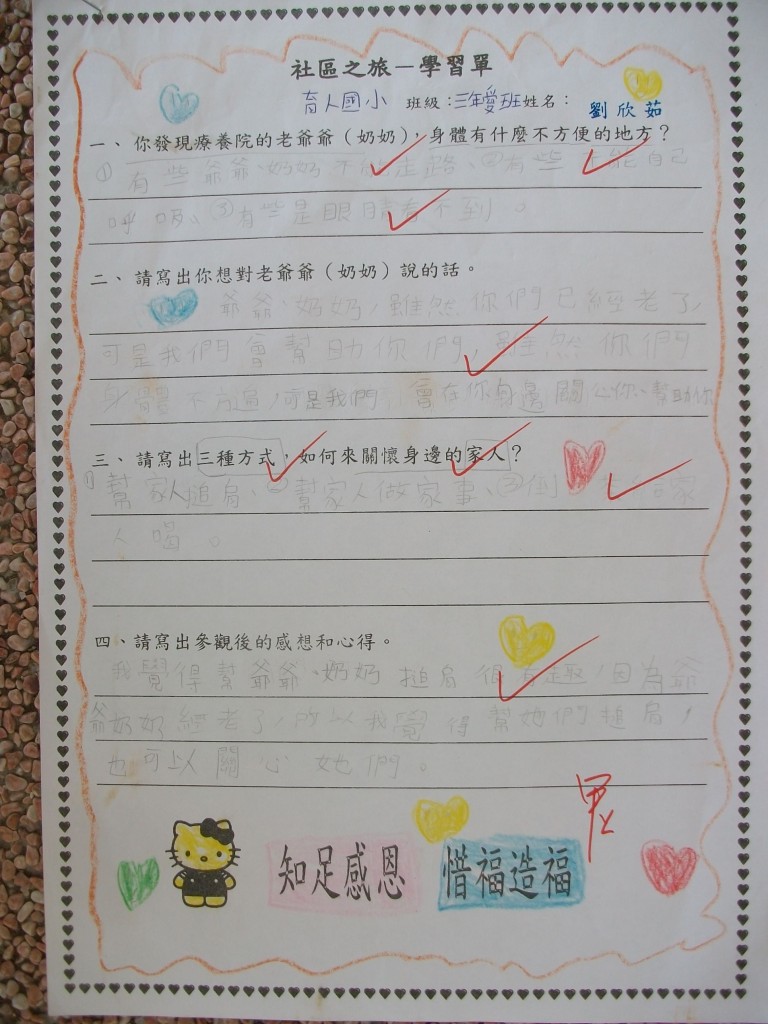 社區之旅－學習單
育人國小 班級：三年愛班姓名：劉欣茹
一、你發現療養院的老爺爺（奶奶），身體有什麼不方便的地方？
①有些爺爺、奶奶不能走路、②有些不能自己
呼吸、③有些是眼睛看不到。
二、請寫出你想對老爺爺（奶奶）說的話。
爺爺、奶奶，雖然你們已經老了，
可是我們會幫助你們，雖然你們
身體不方便，可是我們會在你身邊關心你、幫助你
三、請寫出三種方式，如何來關懷身邊的家人？
①幫家人搥肩、②幫家人做家事、③倒 給家
人喝。
四、請寫出參觀後的感想和心得。
我覺得幫爺爺、奶奶搥肩很有趣，因為爺
爺奶奶經老了，所以我覺得幫她們搥肩，
也可以關心她們。
知足感恩 惜福造福